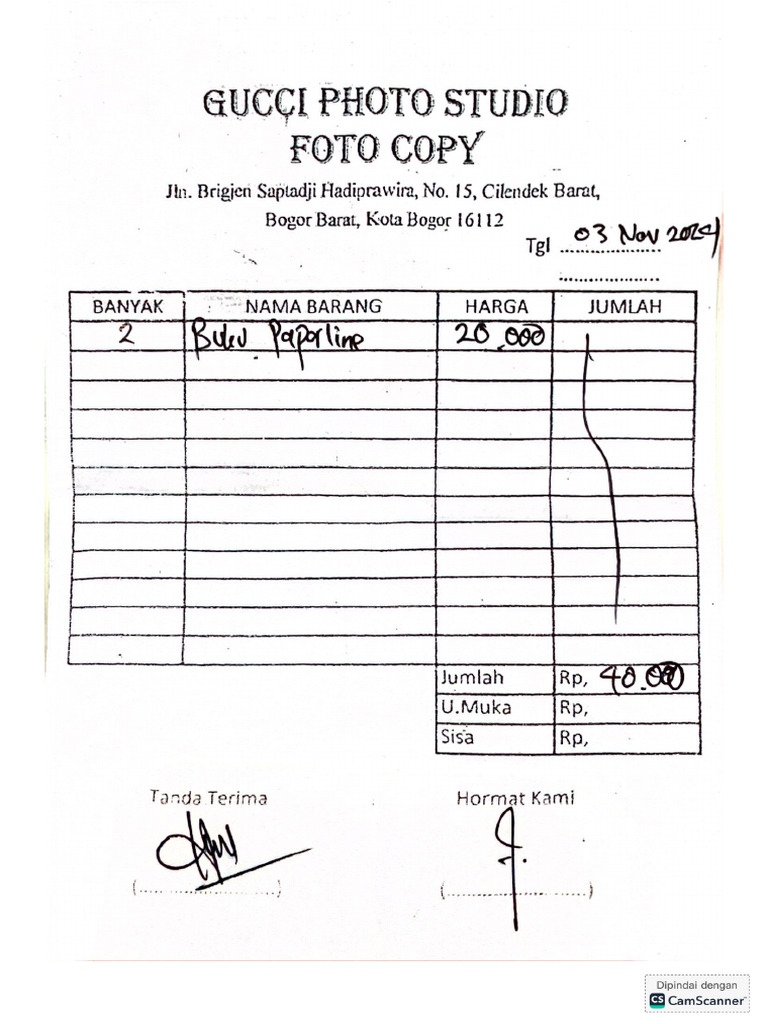 GUCCI PHOTO STUDIO
FOTO COPY
Jln. Brigjen Saptadji Hadiprawira, No. 15, Cilendek Barat,
Bogor Barat, Kota Bogor 16112
Tgl 03 Nov 2024
BANYAK NAMA BARANG HARGA JUMLAH
2 Buku Paperline 20.000
Jumlah Rp, 40.000
U.Muka Rp,
Sisa Rp,
Tanda Terima Hormat Kami
(....................) (....................)
Dipindai dengan
CS CamScanner